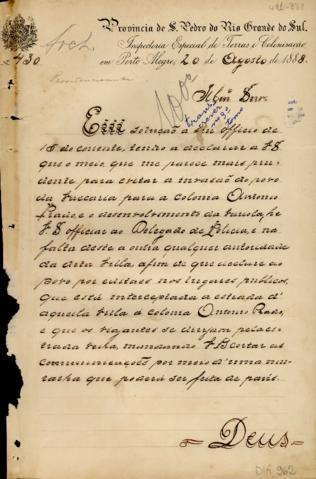 Provincia de S. Pedro do Rio Grande do Sul.
Inspectoria Especial de Terras e Colonisação
em Porto Alegre, 20 de Agosto de 1888.
Nº 430
Arch.
100
Illmo Snr.
Em solução a seu officio de
18 do corrente, tenho a declarar a VS
que o meio, que me parece mais pru-
dente para evitar a invasão do povo
da Vaccaria para a colonia Antonio
Prado, e o desenvolvimento da variola, he
VS officiar ao Delegado de Policia, e na
falta deste a outra qualquer autoridade
da dita Villa, afim de que declare ao
povo por editaes nos lugares publicos,
que está interceptada a estrada d'
aquella villa á colonia Antonio Prado,
e que os viajantes se dirijam pela es-
trada velha, mandando VS cortar as
communicações por meio d'uma mu-
ralha que poderá ser feita de páos.
Deus
DIA. 962